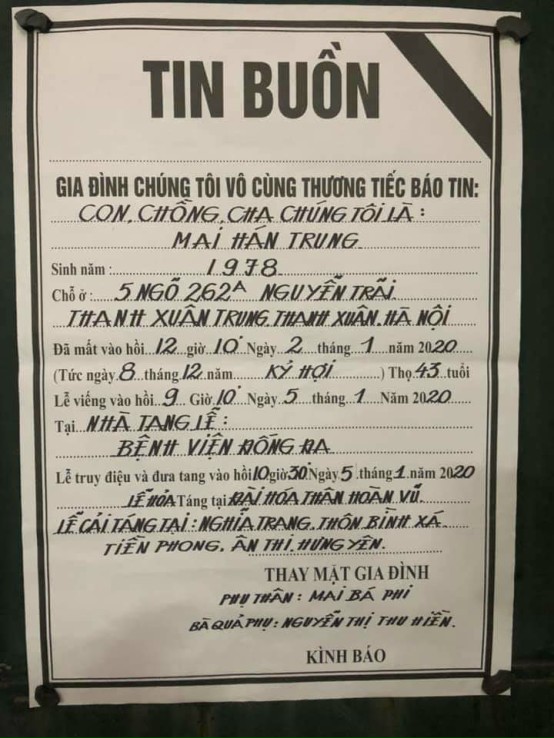 TIN BUỒN
GIA ĐÌNH CHÚNG TÔI VÔ CÙNG THƯƠNG TIẾC BÁO TIN:
CON, CHỒNG, CHA CHÚNG TÔI LÀ:
MAI HÁN TRUNG
Sinh năm: 1978
Chỗ ở: 5 NGÕ 262A NGUYỄN TRÃI
THANH XUÂN TRUNG, THANH XUÂN, HÀ NỘI
Đã mất vào hồi 12 giờ 10' Ngày 2 tháng 1 năm 2020
(Tức ngày 8 tháng 12 năm KỶ HỢI) Thọ 43 tuổi
Lễ viếng vào hồi 9 Giờ 10' Ngày 5 tháng 1 Năm 2020
Tại NHÀ TANG LỄ:
BỆNH VIỆN ĐỐNG ĐA
Lễ truy điệu và đưa tang vào hồi 10 giờ 30' Ngày 5 tháng 1 năm 2020
LỄ HỎA Táng tại ĐÀI HÓA THÂN HOÀN VŨ.
LỄ CẢI TÁNG TẠI: NGHĨA TRANG, THÔN BÌNH XÁ
TIỀN PHONG, ÂN THI, HƯNG YÊN.
THAY MẶT GIA ĐÌNH
PHỤ THÂN: MAI BÁ PHI
BÀ QUẢ PHỤ: NGUYỄN THỊ THU HIỀN.
KÍNH BÁO